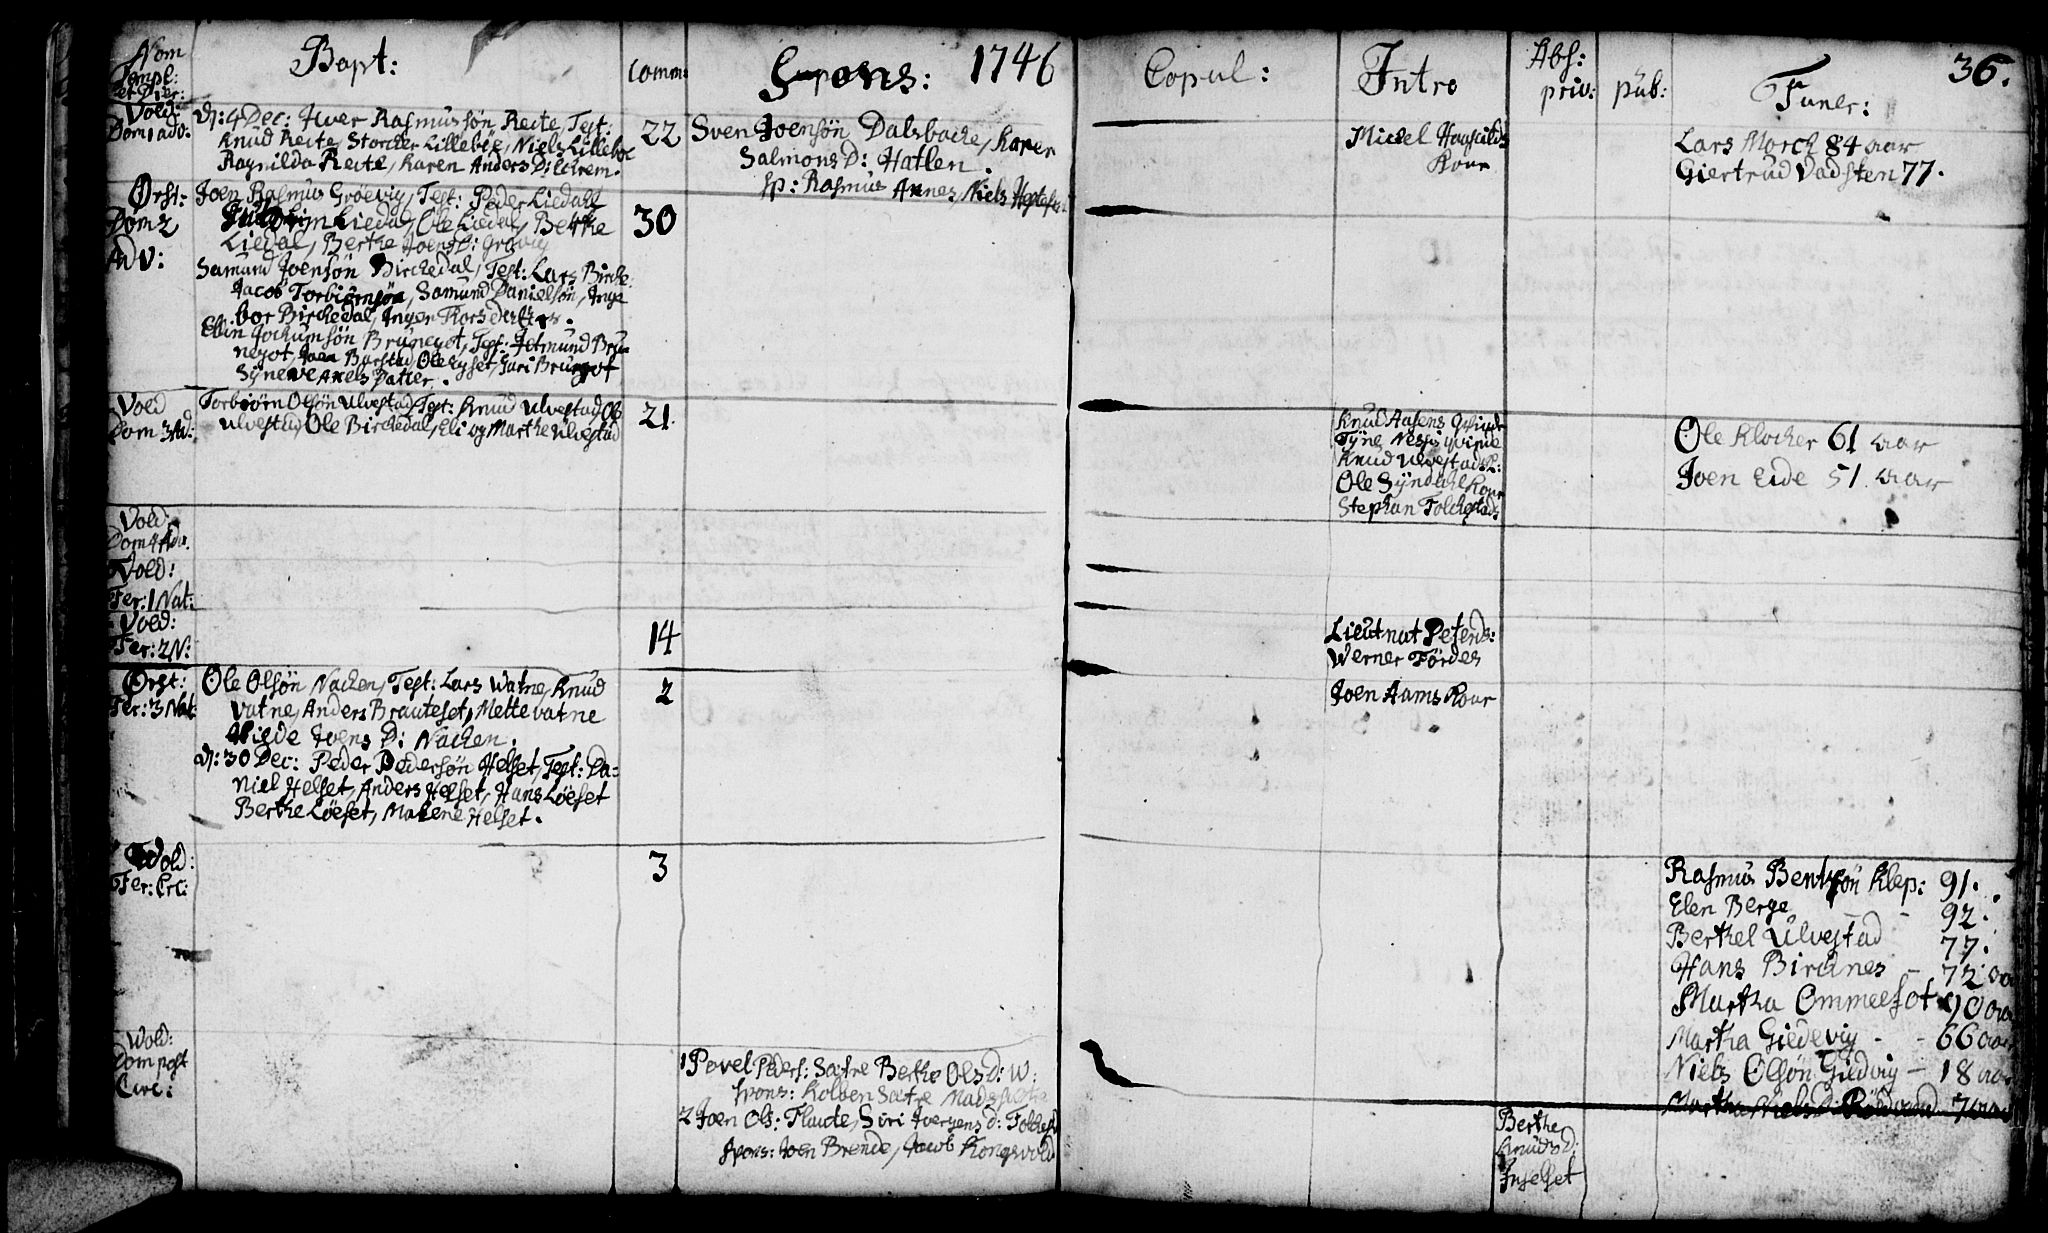 Nom
Templ:
et Dier:
Bapt:
Comm:
Spons:
1746
Copul:
Intro
Abs:
priv:
pub:
Funer:
36.
Vold:
Dom 1 adv:
d: 4 Dec: Iver Rasmussøn Reite, Test:
Knud Reite, Storcker Lillebøe, Niels Lillebøe
Ragnilda Reite, Karen Anders D: Lchrem.
22
Sven Joensøn Dalsbacke, Karen
Salmons D: Hatlen.
sp: Rasmus Aanes, Niels
Mickel
Kone
Lars Morch 84 aar
Giertrud Vadsten 77.
Ørst:
Dom 2
Adv:
Joen Rasmus Groevig, Test: Peder Liedahl
Liedal, Ole Liedal, Berthe
Liedal, Berthe Joens D: Grøvig
Samund Joensøn Birckedal, Test: Lars Bircke:
Jacob Torbiørnsøn, Samund Danielsøn, Inge
bor Birckedal, Inger Thorsdatter.
Elin Jochumsøn Brunegot, Test: Jetmund Bru
negot, Joen Barstad, Ole Eyset, Juri Brunegot
Synneve Axels Datter.
30
Vold
Dom 3 Ad:
Torbiørn Olsøn Ulvestad, Test: Knud Ulvestad, Ole
Ulvestad, Ole Birckedal, Eli og Marthe Ulvestad
21.
Knud Aasens Qvinde
Tyne Nessis qvinde
Knud Ulvestads K:
Ole Syndahl Kone
Stephan Folckestads
Ole Klocker 61 aar
Joen Eide 51. aar
Vold:
Dom 4 Adv.
Vold:
Fer: 1 Nat:
Vold:
Fer: 2 N:
14
Lieutnat Peters:
Werner Fördes
Ørst:
Fer: 3 Nat:
Ole Olsøn Nacken, Test: Lars Watne, Knud
Vatne, Anders Brauteset, Mette Vatne
Joens D: Nacken.
d: 30 Dec: Peder Pedersøn Helset, Test: Da=
niel Helset, Anders Helset, Hans Løeset
Berthe Løeset, Malene Helset.
2
Joen Aams Kone
Wold:
Fer: Circ:
3
Rasmus Bentsøn Klep: 91.
Elen Berge - - 92.
Berthel Ulvestad 77.
Hans Bircknes - 72 aar
Martha Ommeesot 90 aar
Martha Giedevig - - 66 aar
Niels Olsøn Giedvig - 18 aar
Martha Niels D:
Wold:
Dom post
Circ:
1 Povel Peders: Sætre Berthe Ols D: W:
spons: Kolben Sætre Mads
2 Joen Ols: Flaute, Siri Jvergens d: Folckest
spons: Joen Brende, Jacob Kongsvold
Berthe
Knuds d:
Inselset